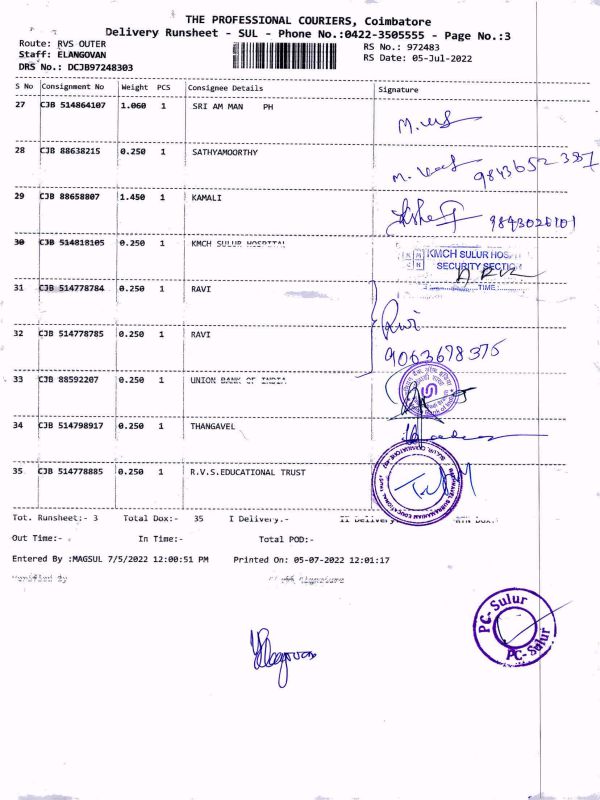 THE PROFESSIONAL COURIERS, Coimbatore
Delivery Runsheet - SUL - Phone No.:0422-3505555 - Page No.:3
Route: RVS OUTER
RS No.: 972483
Staff: ELANGOVAN
RS Date: 05-Jul-2022
DRS No.: DCJB97248303
S No Consignment No Weight PCS Consignee Details Signature
27 CJB 514864107 1.060 1 SRI AM MAN PH
28 CJB 88638215 0.250 1 SATHYAMOORTHY
9843652387
29 CJB 88658807 1.450 1 KAMALI
9843026101
30 CJB 514818105 0.250 1 KMCH SULUR HOSPITAL
KMCH SULUR HOSP
SECURITY SECTION
TIME:
31 CJB 514778784 0.250 1 RAVI
Ravi
32 CJB 514778785 0.250 1 RAVI
9063678375
33 CJB 88592207 0.250 1 UNION BANK OF INDIA
34 CJB 514798917 0.250 1 THANGAVEL
35 CJB 514778885 0.250 1 R.V.S.EDUCATIONAL TRUST
Tot. Runsheet:- 3 Total Dox:- 35 I Delivery.- II Delivery. RTN Dox.
Out Time:- In Time:- Total POD:-
Entered By :MAGSUL 7/5/2022 12:00:51 PM Printed On: 05-07-2022 12:01:17
Verified By Signature
Elangovan
PC- Sulur
PC- Sulur